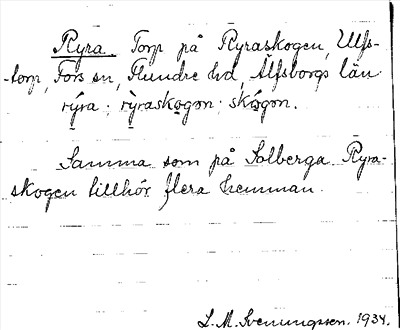 Ryra. Torp på Ryraskogen, Ulfs-
-torp, Fors sn, Flundre hd, Älfsborgs län
rýra : rỳraskogən : skógən.
Samma som på Solberga. Ryra-
skogen tillhör flera hemman.
L. M. Svenungsson. 1934.